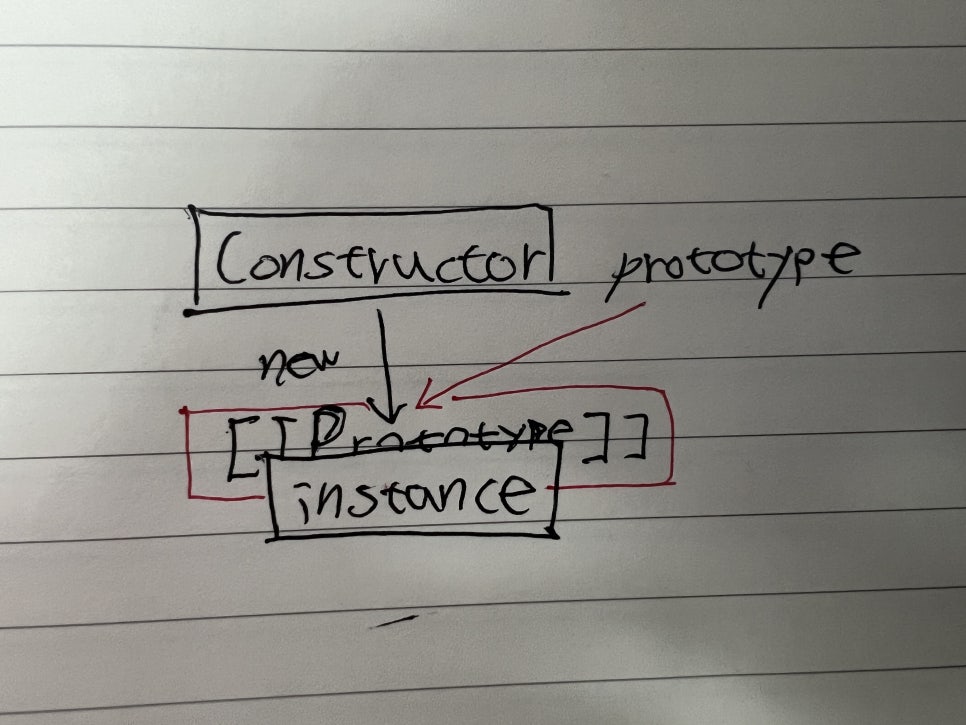 Constructor prototype
new
[[Prototype]]
instance